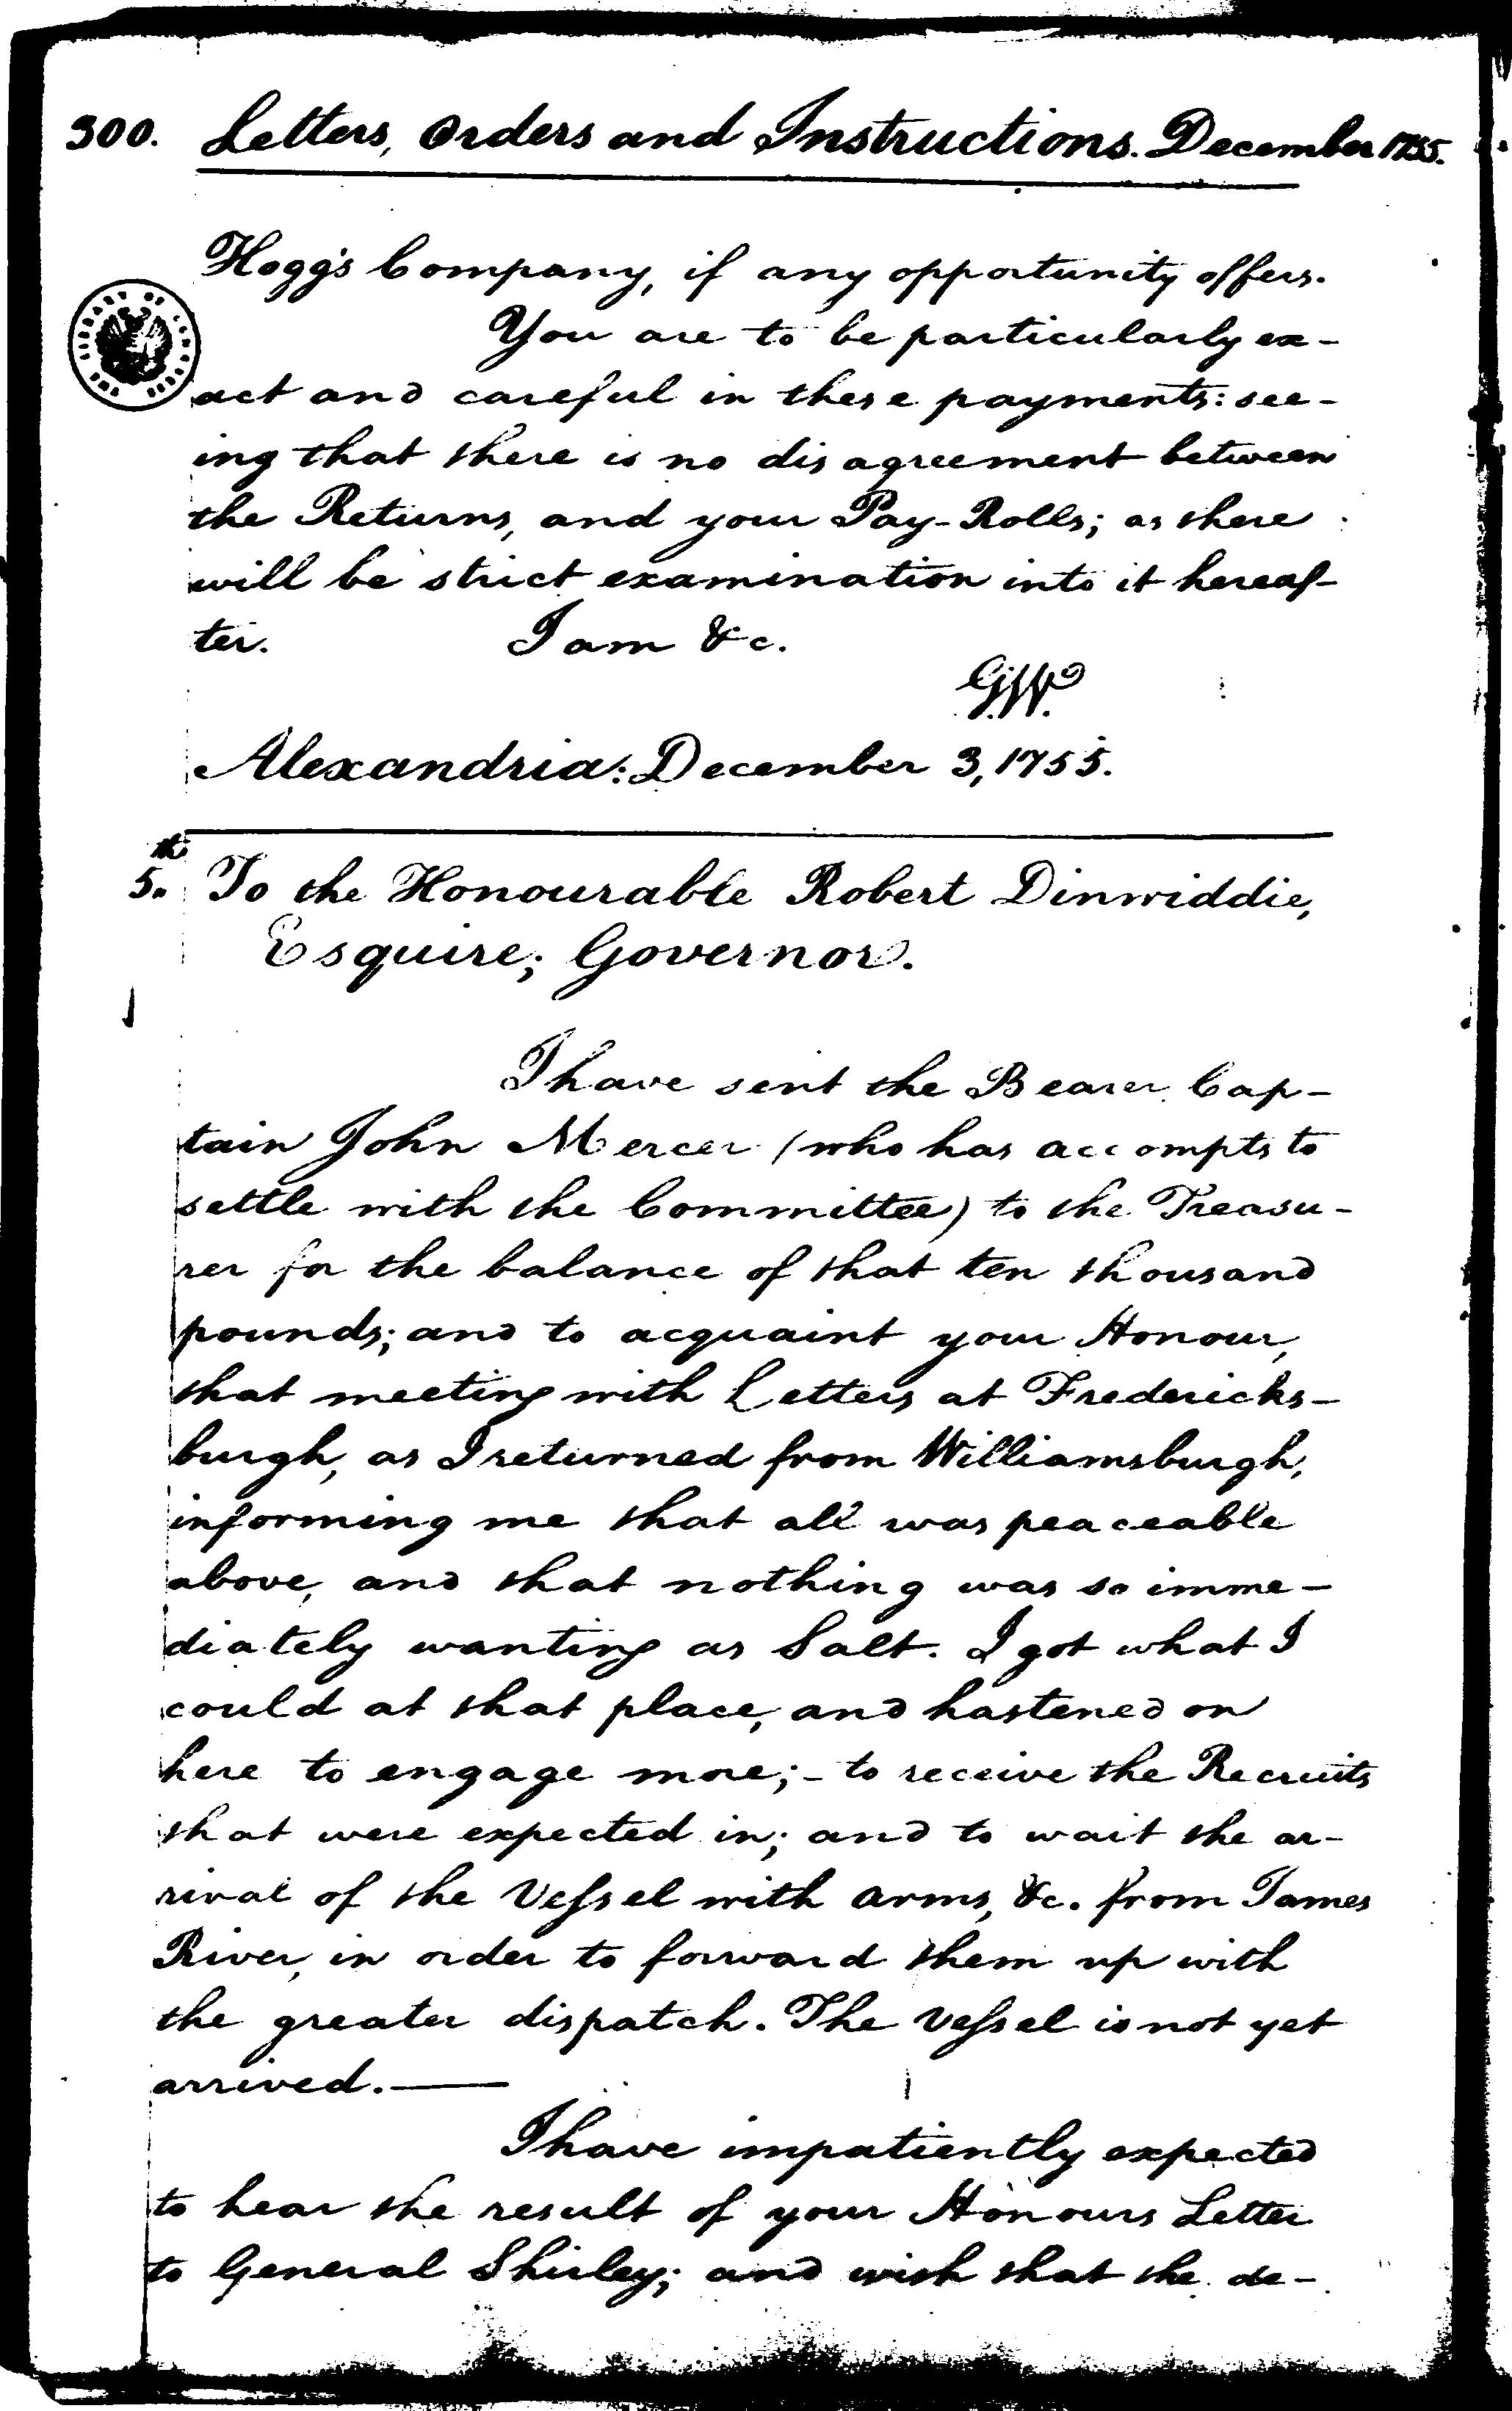 300. Letters, Orders and Instructions. December 1755.
Hogg's Company, if any opportunity offers.
You are to be particularly ex-
act and careful in these payments: see-
ing that there is no disagreement between
the Returns, and your Pay-Rolls; as there
will be strict examination into it hereaf-
ter. I am &c.
GW.
Alexandria: December 3, 1755.
5.th To the Honourable Robert Dinwiddie,
Esquire; Governor.
I have sent the Bearer Cap-
tain John Mercer (who has accompts to
settle with the Committee) to the Treasu-
rer for the balance of that ten thousand
pounds; and to acquaint your Honour,
that meeting with Letters at Fredericks-
burgh, as I returned from Williamsburgh,
informing me that all was peaceable
above, and that nothing was so imme-
diately wanting as Salt. I got what I
could at that place, and hastened on
here to engage more; - to receive the Recruits
that were expected in; and to wait the ar-
rival of the Vessel with arms, &c. from James
River, in order to forward them up with
the greater dispatch. The Vessel is not yet
arrived. —
I have impatiently expected
to hear the result of your Honours Letter
to General Shirley; and wish that the de-